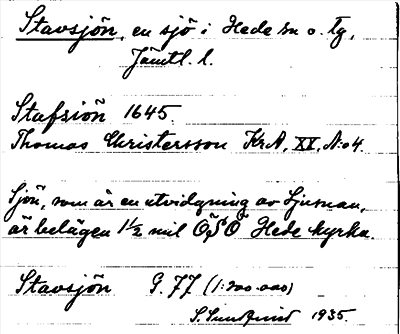 Stavsjön, en sjö i Hede sn o. tg,
Jämtl. l.
Stafsiön 1645.
Thomas Christersson KrA, XX, N:o 4.
Sjön, som är en utvidgning av Ljusnan,
är belägen 1½ mil ÖSÖ Hede kyrka.
Stavsjön G. 77 (1:200.000)
S. 1935.